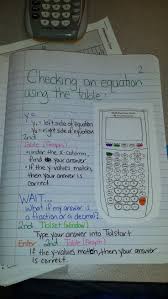 2
Checking an equation
using the table:
y =
y₁ = left side of equation
y₂ = right side of equation
2nd
Table (Graph)
*under the x-column,
find your answer
*if the y-values match,
then your answer is
correct.
WAIT...
What if my answer is
a fraction or a decimal?
2nd Tblset (window)
Type your answer into Tblstart
Enter 2nd Table (Graph)
If the y-values match, then your answer
is correct.